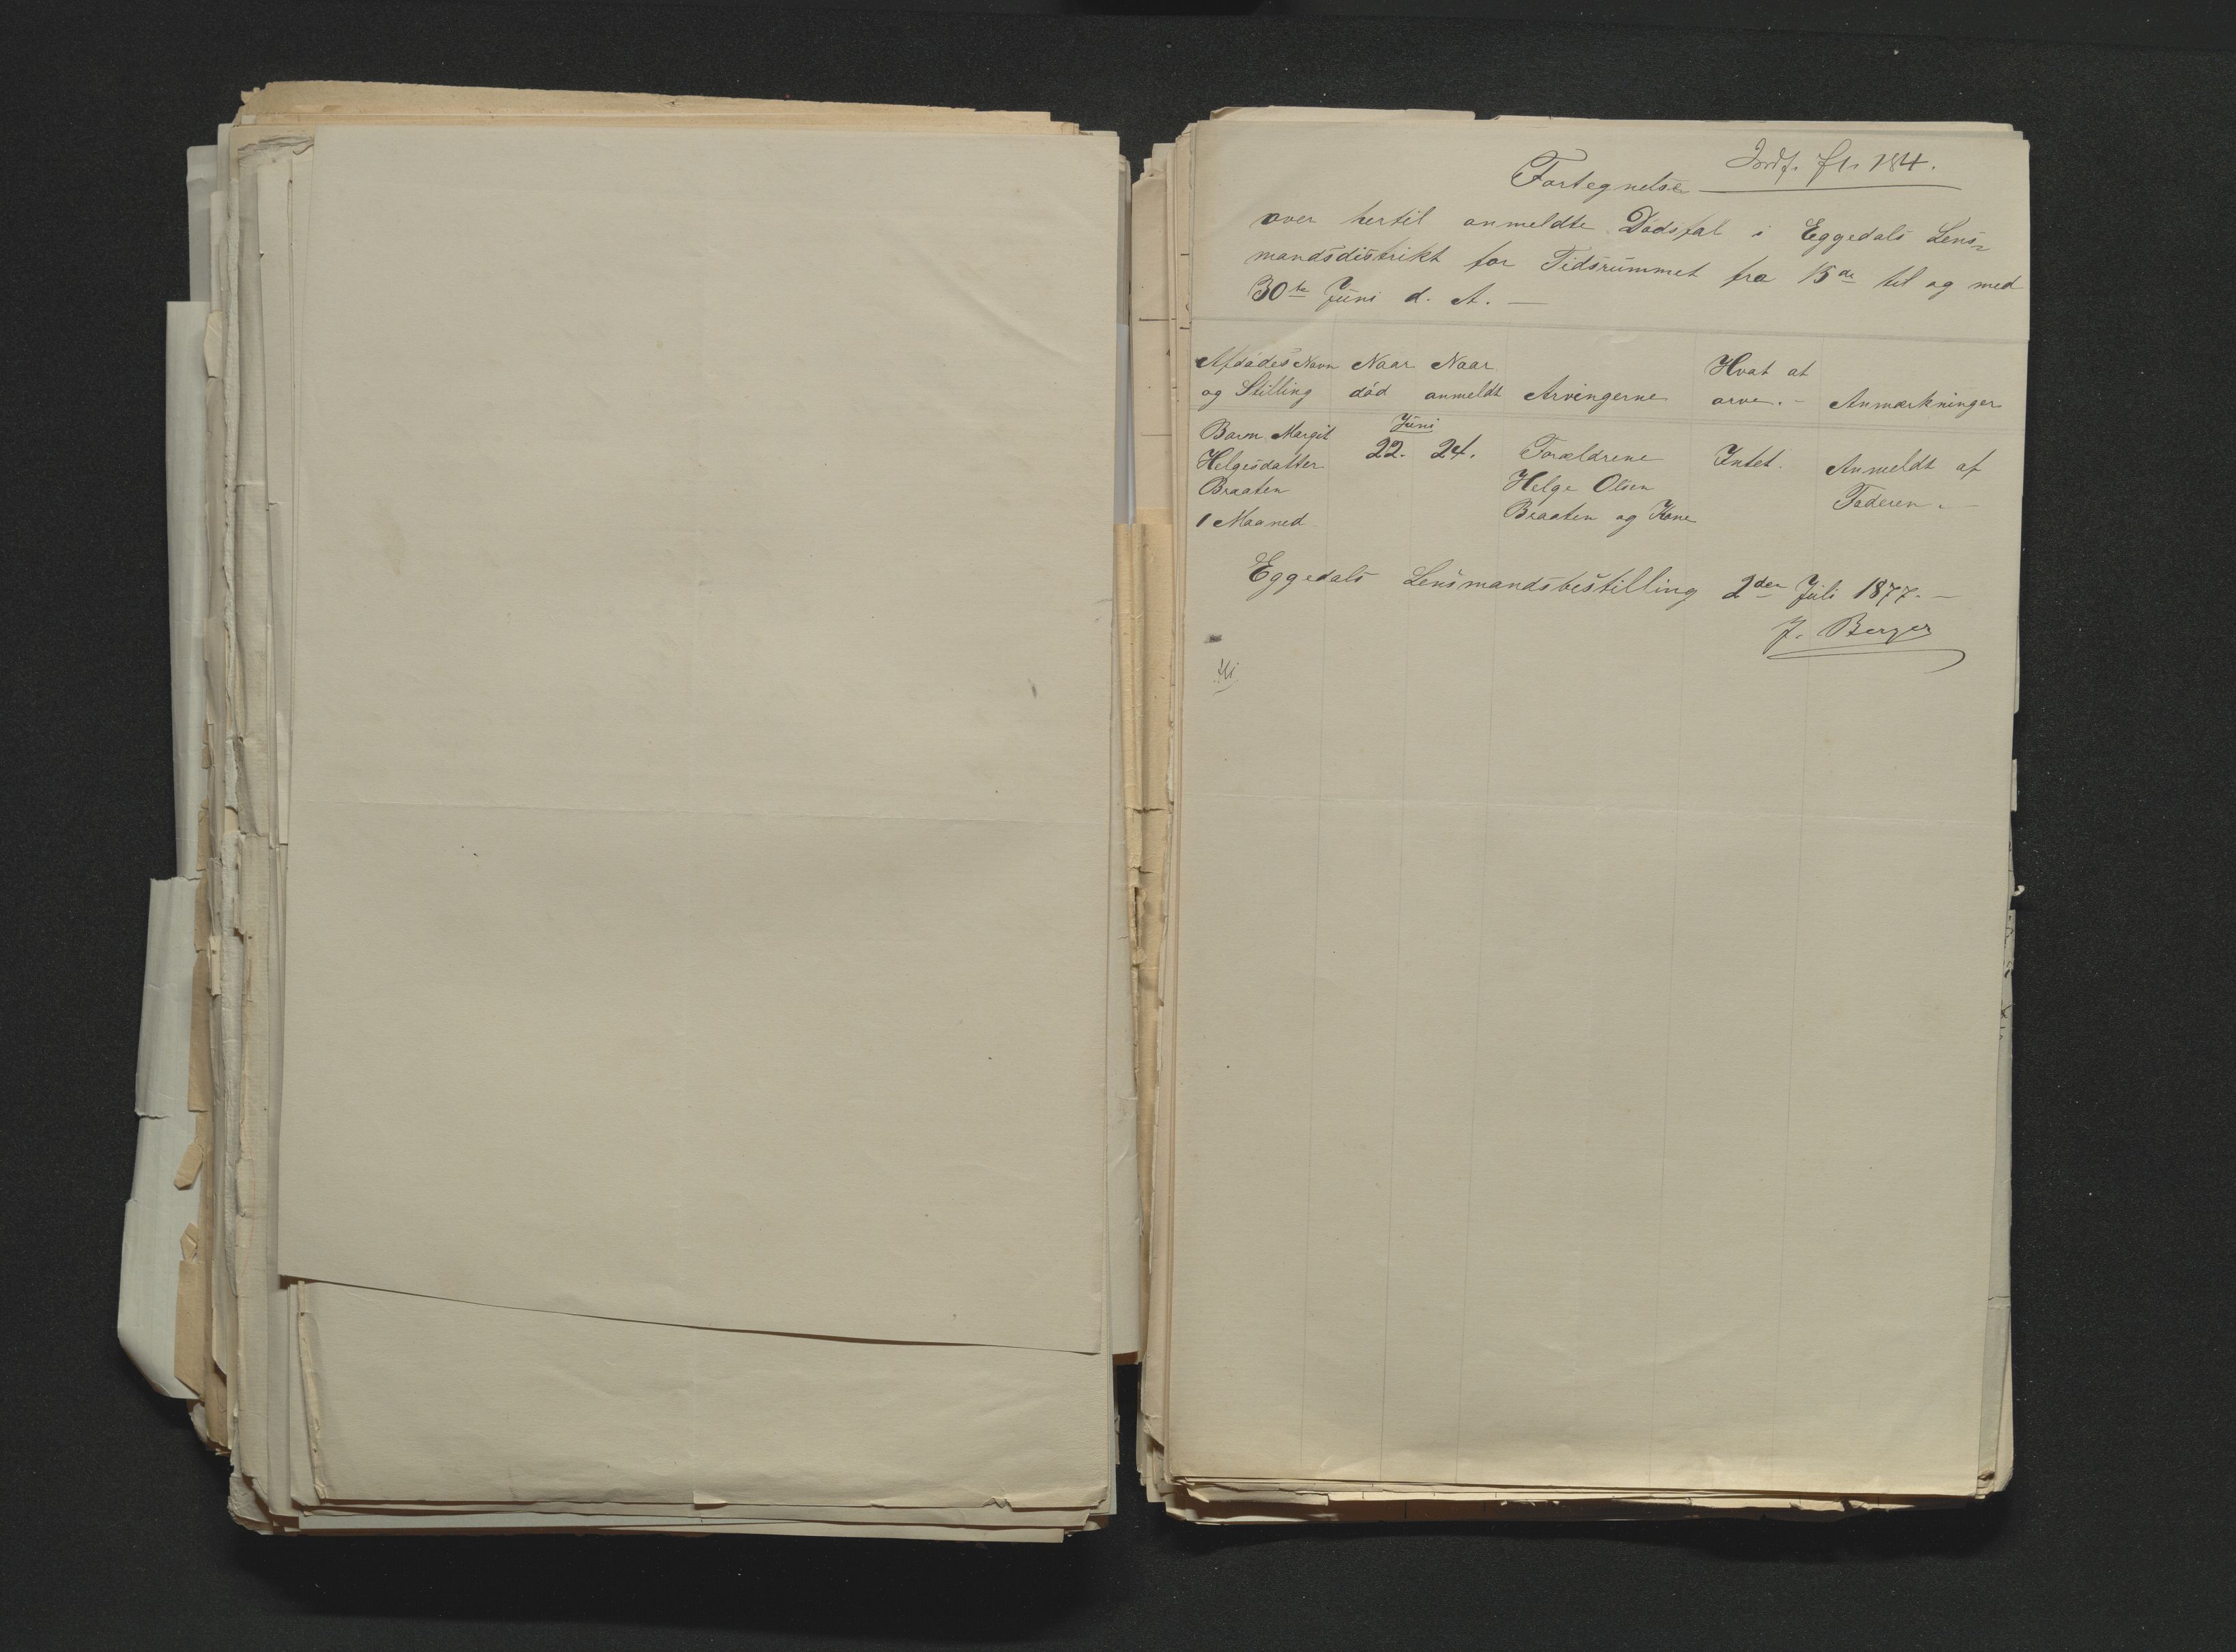 Indf. f1. 184.
Fortegnelse
over hertil anmeldte Dødsfal i Eggedals Lens=
mandsdistrikt for Tidsrummet fra 15de til og med
30te Juni d. A. —
Afdødes Navn og Stilling | Naar død | Naar anmeldt | Arvingerne | Hvat at arve. - | Anmærkninger
Juni
Barn Margit Helgesdatter Braaten 1 Maaned | 22. | 24. | Forældrene Helge Olsen Braaten og Kone | Intet. | Anmeldt af Faderen. —
Eggedals Lensmandsbestilling 2den Juli 1877. —
J. Berger